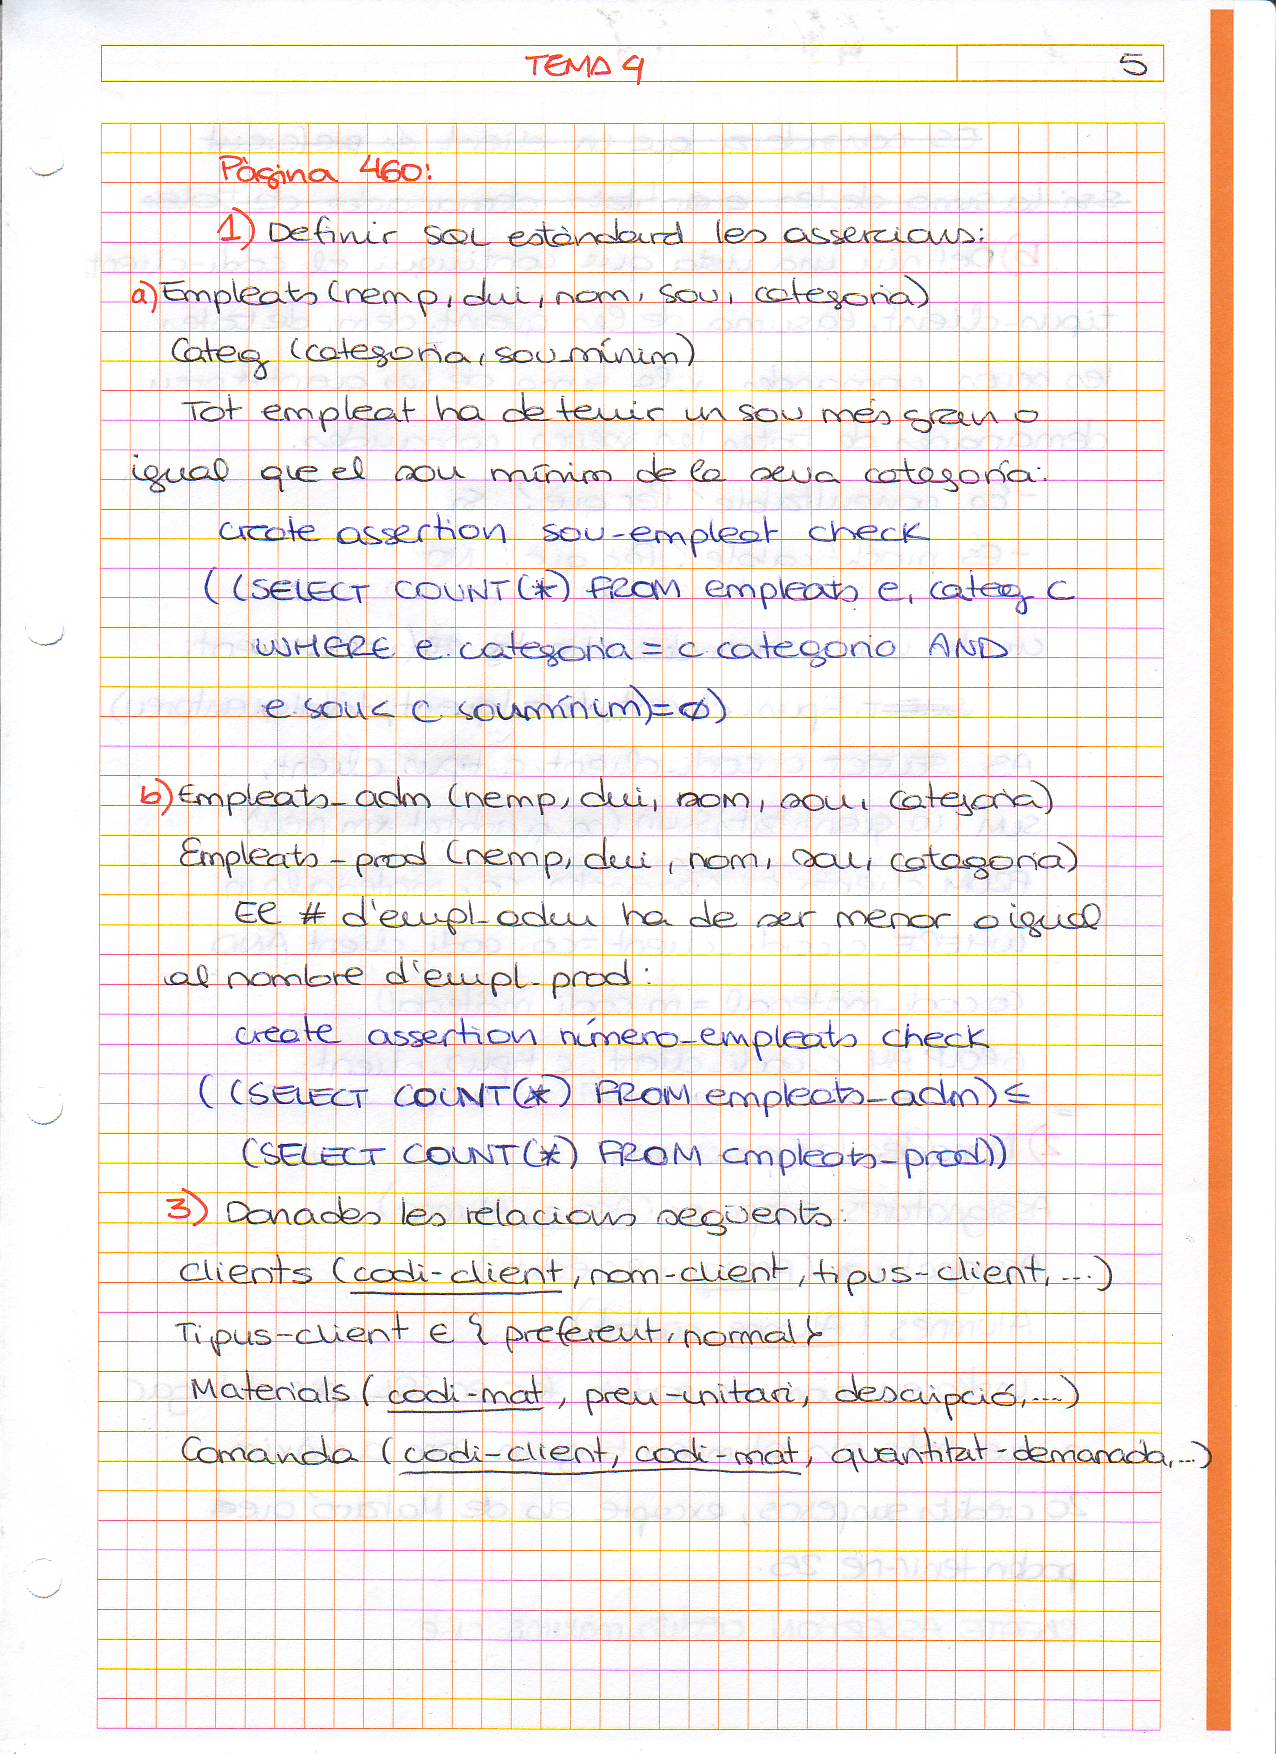 TEMA 4
5
Pàgina 460:
1) Definir SQL estàndard les assercions:
a) Empleats (nemp, dui, nom, sou, categoria)
Categ (categoria, sou_mínim)
Tot empleat ha de tenir un sou més gran o
igual que el sou mínim de la seva categoría:
create assertion sou-empleat check
((SELECT COUNT(*) FROM empleats e, categ c
WHERE e.categoria = c categoria AND
e.sou < c soumínim)=Ø)
b) Empleats_adm (nemp, dui, nom, sou, categoria)
Empleats-prod (nemp, dui, nom, sou, categoria)
El # d'empl_adm ha de ser menor o igual
al nombre d'empl_prod:
create assertion número_empleats check
((SELECT COUNT(*) FROM empleats_adm) ≤
(SELECT COUNT(*) FROM empleats_prod))
3) Donades les relacions següents:
Clients (codi-client, nom-client, tipus-client, ...)
Tipus-client ∈ { preferent, normal}
Materials (codi-mat, preu-unitari, descripció, ....)
Comanda (codi-client, codi-mat, quantitat-demanada, ...)